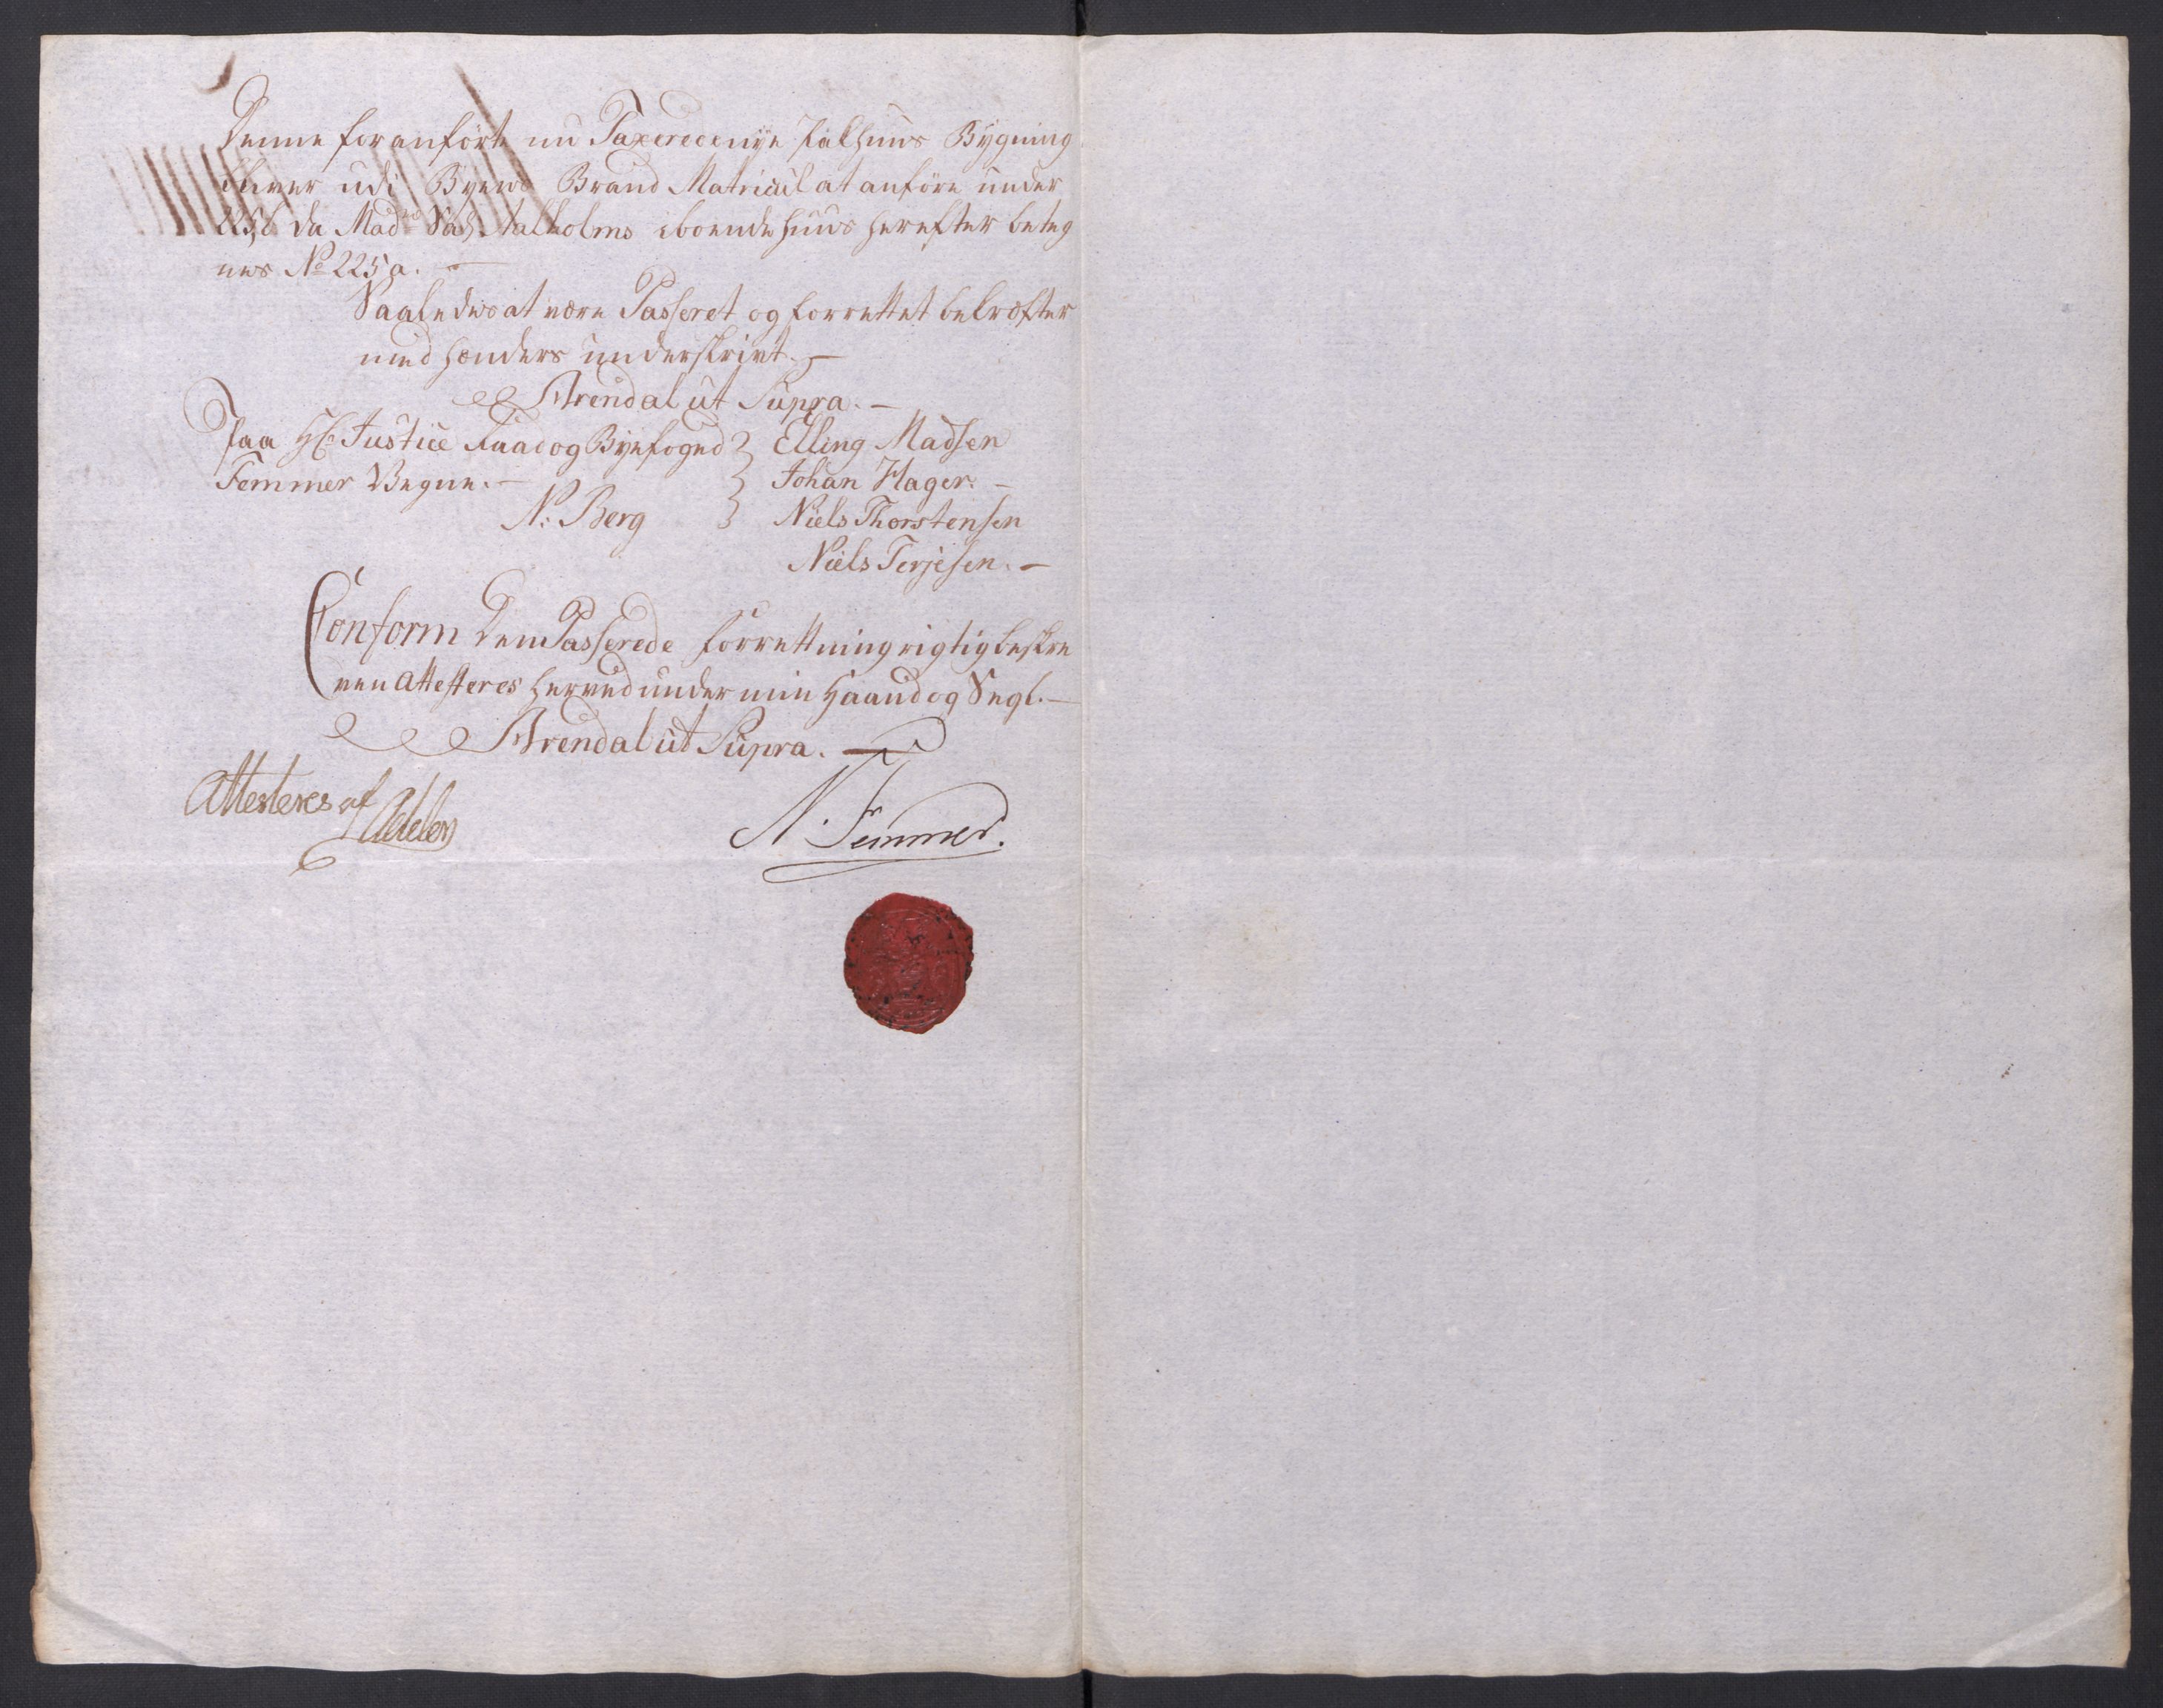 Denne foranførte nu Taxerede nÿe Pakhuus Bÿgning
bliver udi Byens Brand Matricul at anføre under
225b da Mad.me Sal. Kalholms iboende huus herefter beteg
nes No 225a. —
Saaledes at være Passeret og forrettet bekræfter
med hænders underskrivt. —
Arendal ut Supra. —
Paa Hr. Justice Raad og Bÿefoged
Femmer Vegne. —
N: Berg
Elling Madsen
Johan Hager. —
Niels Thorstensen
Niels Terjesen. —
Conform Den Passerede forrettning rigtig beskre
ven attesteres herved under min Haand og Segl. —
Arendal ut Supra. —
Attesteres af
N. Femmer.